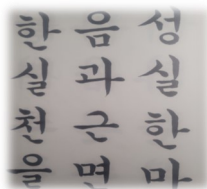 성실한마
음과근면
한실천을